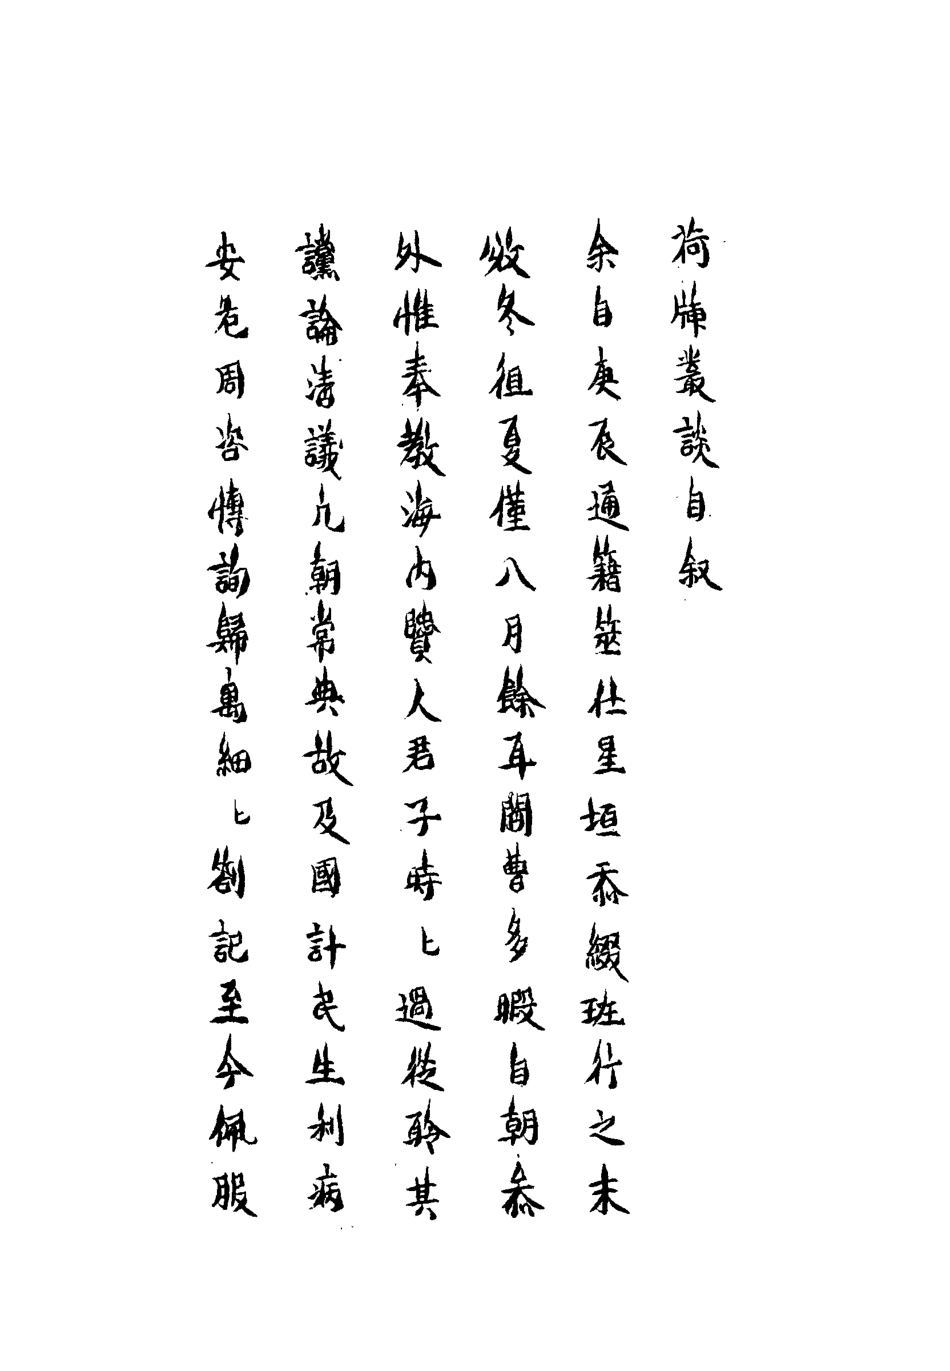 荷牐叢談自叙
余自庚辰通籍筮仕星垣忝綴班行之末
收冬徂夏僅八月餘耳閒曹多暇自朝叅
外惟奉教海內贒人君子時〻過從聆其
讜論清議凢朝常典故及國計民生利病
安危周咨博詢歸寓細〻劄記至今佩服